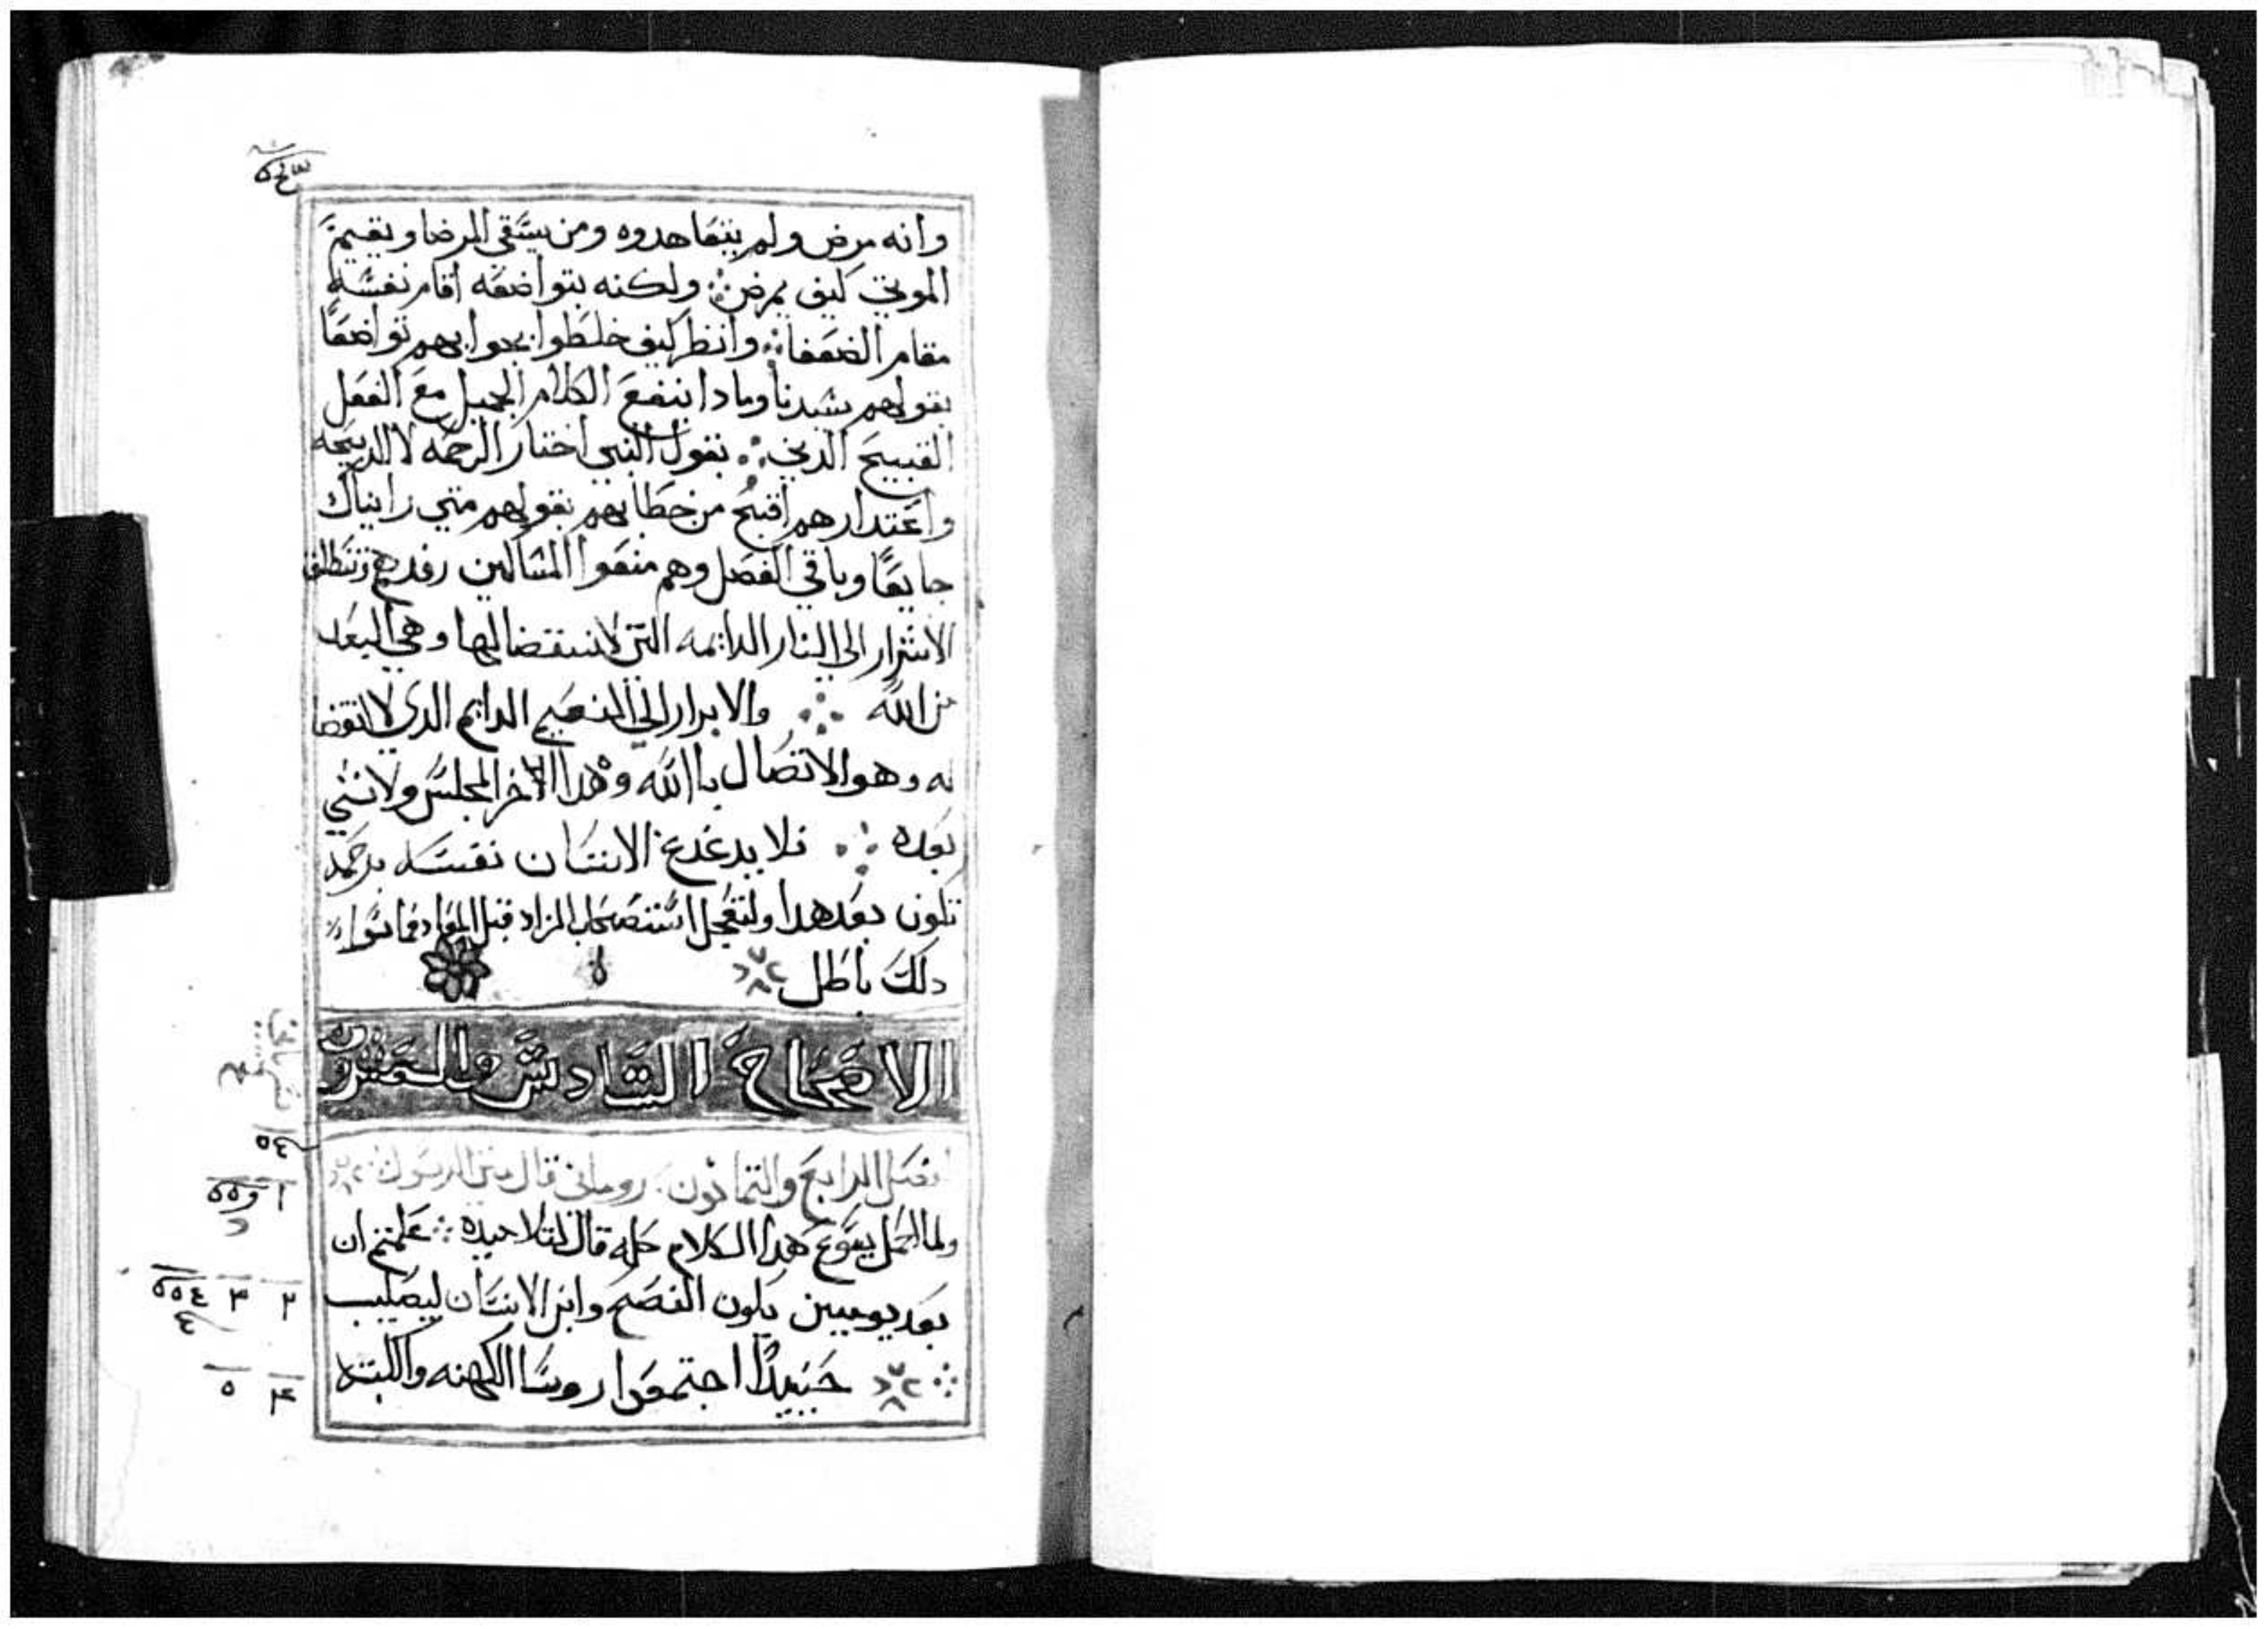 وانه مرض ولم يتعاهدوه ومن يشقي المرضا ويقيم
الموتي كيف يمرض ولكنه بتواضعه اقام نفسه
مقام الضعفا وانظر كيف خلطوا بجوابهم تواضعا
بقولهم يسيدنا ومادا ينفع الكلام الجميل مع الفعل
القبيح الدني يقول النبي اختار الرحمه لا الدبيحه
واعتدارهم اقبح من خطابهم بقولهم متي رايناك
جايعا وباقي الفصل وهم منعوا المساكين رفدهم وتنطلق
الاشرار الي النار الدايمه التي لا تنقضا لها وهي البعد
من الله والابرار الي النعيم الدايم الدي لا انقضا
له وهو الاتصال باالله وهدا الاخر المجلس ولا شي
بعده فلا يدغدغ الانسان نفسه برحمه
تكون بعد هدا وليعجل استصحاب الزاد قبل المعاد فما سوا
دلك باطل
الاصحاح السادس والعشرون
الفصل الرابع والتمانون روماني قال متي الرسول
ولما اكمل يسوع هدا الكلام كله قال لتلاميده علمتم ان
بعد يوميين يكون الفصح وابن الانسان ليصلب
حينيدا اجتمعوا روسا الكهنه والكتبه